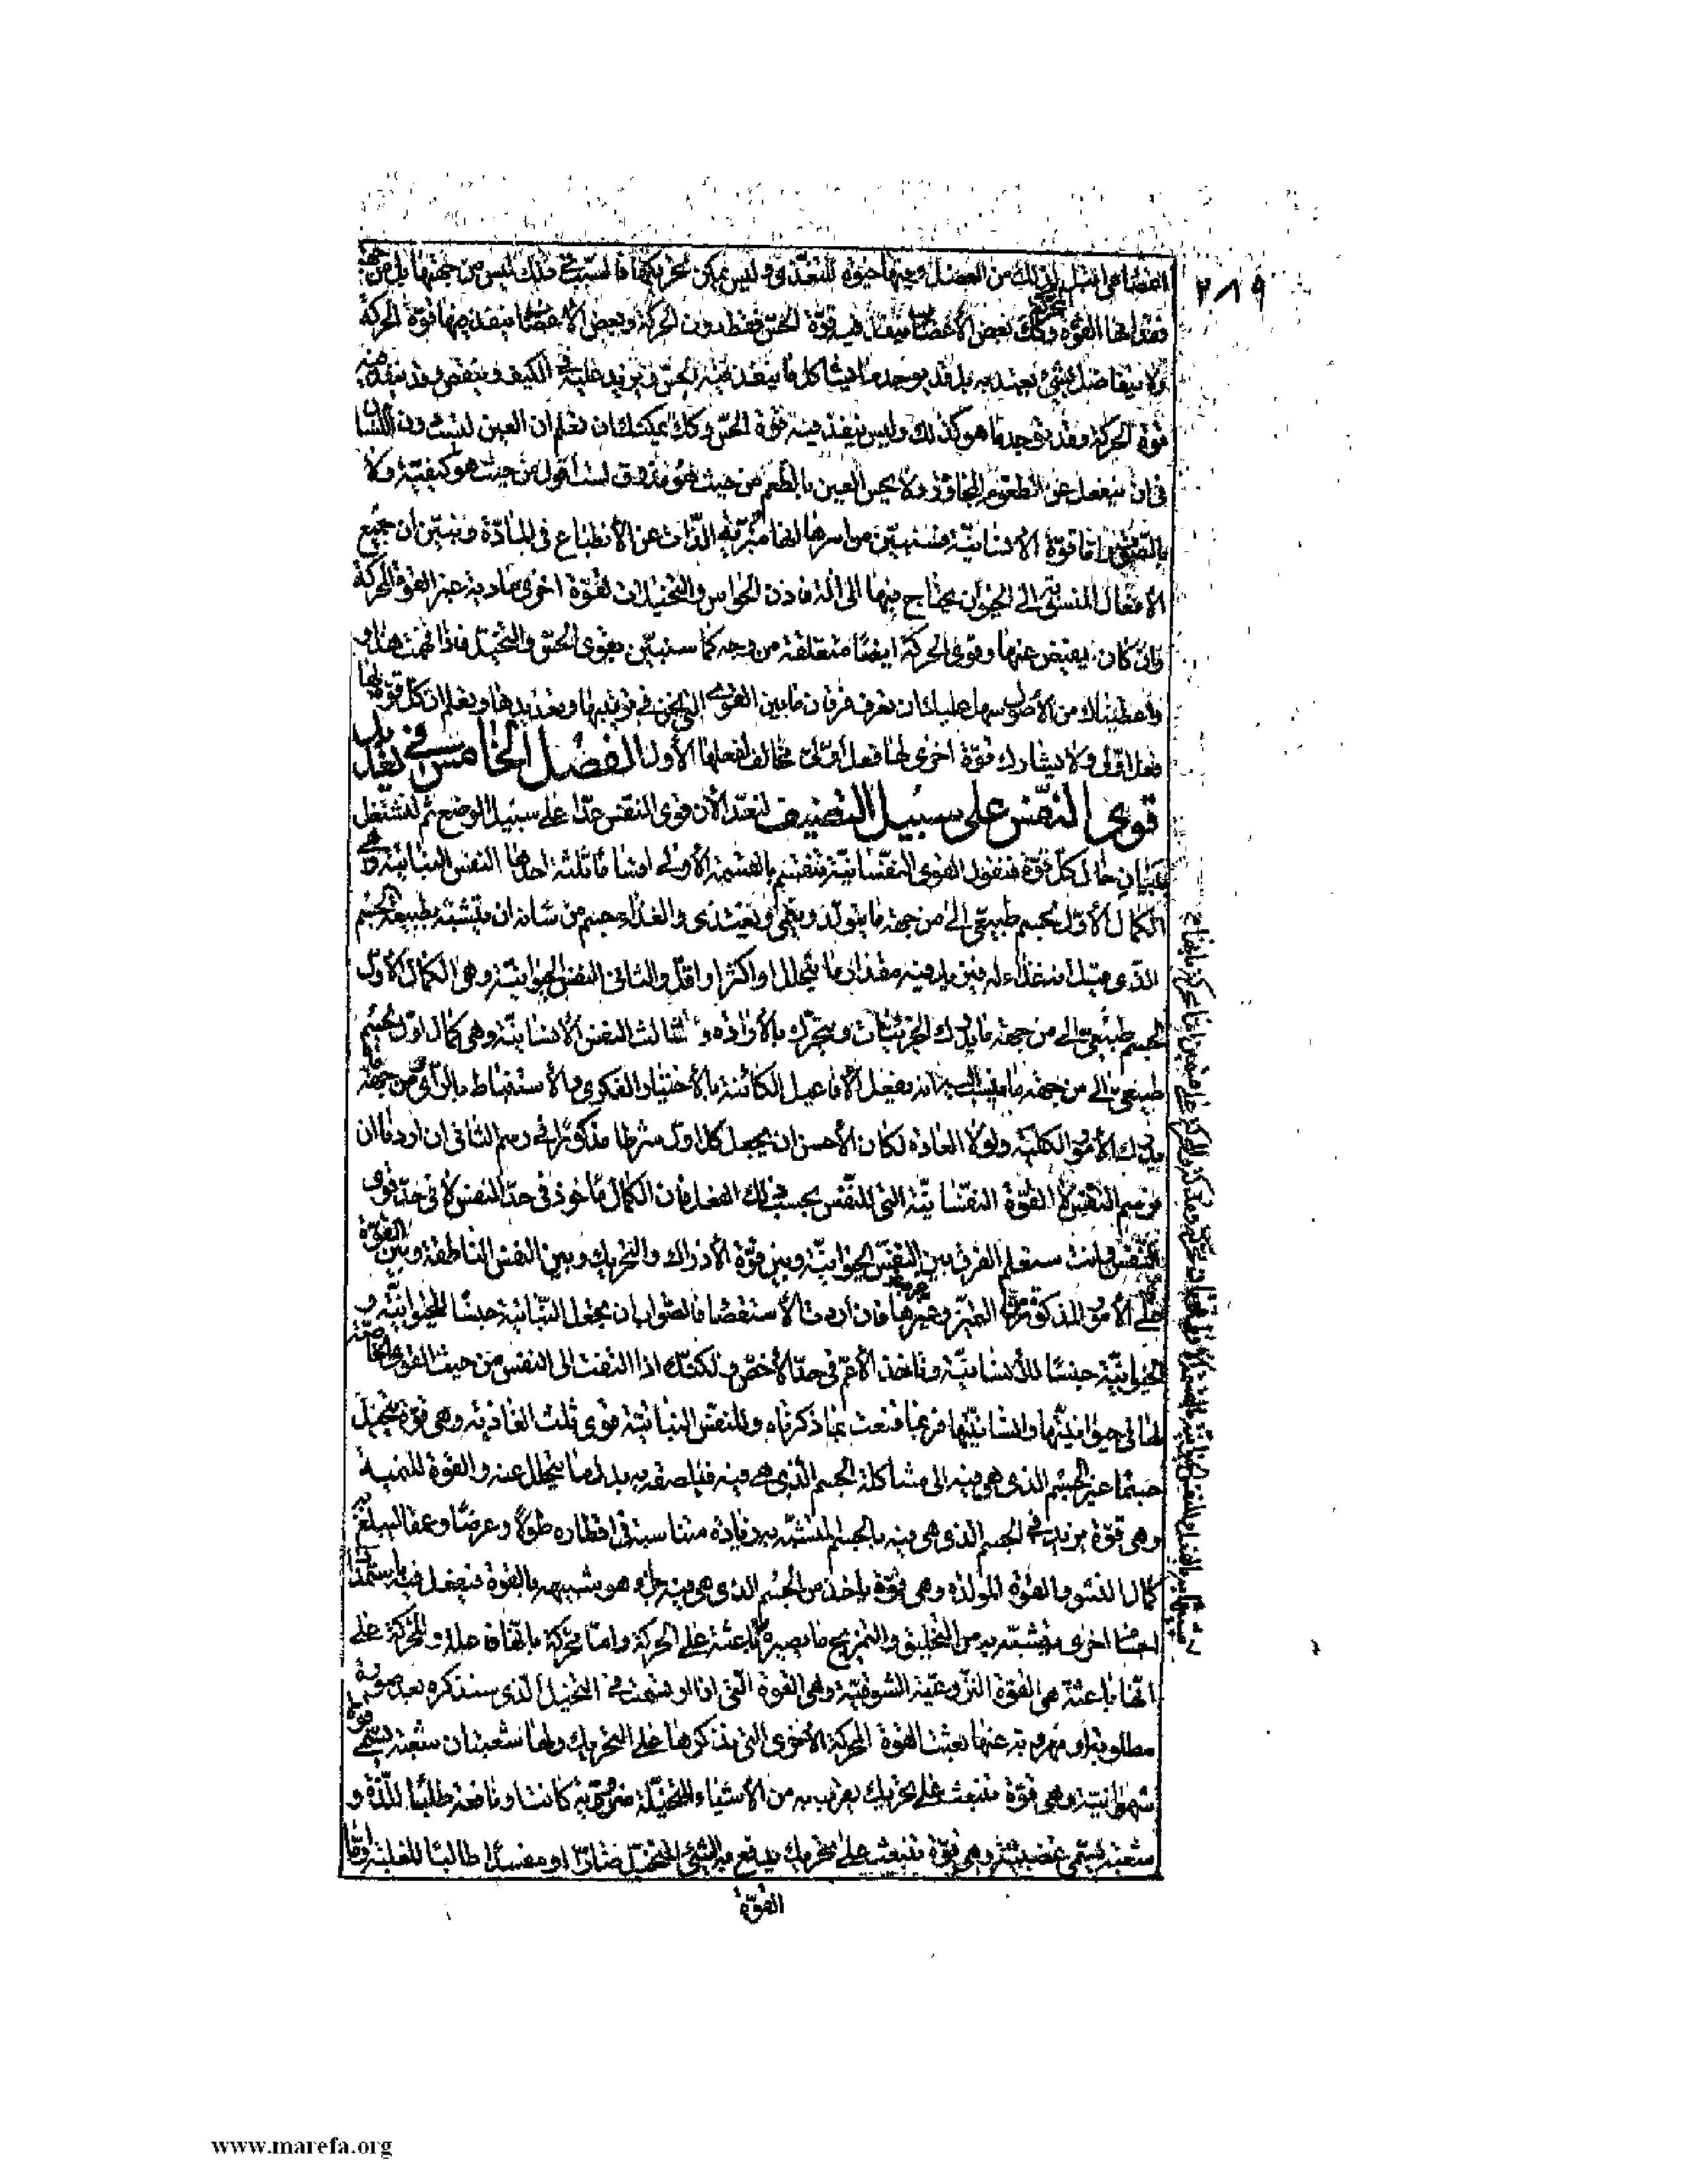 ٢٨٩
اعضا هي اقبل لذلك من العضل وفيها حيوة للتغذى وليس يمكن تحريكها فالسبب في ذلك ليس من جهتها بل من جهة
فقدانها القوة المحركة وكك بعض الأعضا ينفذ فيه قوة الحس فقط دون الحركة وبعض الأعضا ينفذ فيها قوة الحركة
ولا يتفاضل بشئ يعتد به بل قد يوجد ما يشاكل ما ينفذ فيه الحس ويزيد عليه في الكيف وينقص وقد ينفذ فيه
قوة الحركة وقد يوجد ما هو كذلك وليس ينفذ فيه قوة الحس وكك يمكنك ان تعلم ان العين ليست دون اللسان
في ان ينفعل عن الطعوم المجاوزة ولا يحس العين بالطعم من حيث هو مذوق لست اقول من حيث هو كيفية ولا
بالصوت اما قوة الانسانية فسنبين من امرها انها متبرية الذات عن الانطباع في المادة ونبين ان جميع
الافعال المنسوبة الى الحيوان يحتاج فيها الى الة فاذن الحواس والتخيلات لقوة اخرى مادية غير القوة المحركة
وان كان يفيض عنها وقوى الحركة ايضا متعلقة من وجه كما سنبين بقوى الحس والتخيل فاذا فهمت هذا و
ما اعطيناك من الأصول سهل عليك ان تعرف فرقان ما بين القوى التي نحن في ترتيبها وتعديدها وتعلم ان كل قوة لها
فعل اولى ولا يشارك قوة اخرى لها فعل اولى مخالف لفعلها الأول الفصل الخامس في تعديد
قوى النفس على سبيل التصنيف لنعد الأن قوى النفس عدا على سبيل الوضع ثم لنشتغل
ببيان حال كل قوة فنقول القوى النفسانية تنقسم بالقسمة الأولى اقساما ثلثة احدها النفس النباتية وهى
الكمال الأول لجسم طبيعى الى من جهة ما يتولد وينمى ويغتذى والغذاء جسم من شانه ان يتشبه بطبيعة الجسم
الذى قيل انه غذاء له فيزيد فيه مقدار ما يتحلل او اكثر او اقل والثانى النفس الحيوانية وهى الكمال الأول
لجسم طبيعى الى من جهة ما يدرك الجزئيات ويتحرك بالأرادة والثالث النفس الأنسانية وهى كمال اول لجسم
طبيعى الى من جهة ما ينسب اليه انه يفعل الأفاعيل الكائنة بالأختيار الفكرى والأستنباط بالرأى ومن جهة ما
يدرك الأمور الكلية ولولا العادة لكان الأحسن ان يجعل كل اول شرطا مذكورا في رسم الثانى ان اردنا ان
نرسم النفس لا القوة النفسانية التي للنفس بحسب ذلك الفعل فان الكمال ماخوذ في حد النفس لا في حد قوى
النفس وانت ستعلم الفرق بين النفس الحيوانية وبين قوة الأدراك والتحريك وبين النفس الناطقة وبين القوة
على الأمور المذكورة من التميز وغيرها فان اردت الأستقصا فالصواب ان يجعل النباتية جنسا للحيوانية و
الحيوانية جنسا للأنسانية وتاخذ الأعم في حد الأخص ولكنك اذا التفت الى النفس من حيث القوى الخاصة
لها في حيوانيتها وانسانيتها فربما قنعت بما ذكرناه وللنفس النباتية قوى ثلث الغاذية وهى قوة تحيل
جسما غير الجسم الذى هى فيه الى مشاكلة الجسم الذى هى فيه فيلصقه به بدل ما يتحلل عنه والقوة المنمية
وهى قوة تزيد في الجسم الذى هى فيه بالجسم المتشبه به زيادة متناسبة في اقطاره طولا وعرضا وعمقا ليبلغ به
كمال النشو والقوة المولدة وهى قوة ياخذ من الجسم الذى هى فيه جزءا هو شبيهه بالقوة فيفعل فيه باستمداد
اجسا اخرى يتشبه به من التخليق والتمزيج ما يصيره باعثة على الحركة واما محركة بانها فاعلة والمحركة على
انها باعثة هى القوة النزوعية الشوقية وهى القوة التى اذا ارتسمت في التخيل الذى سنذكره بعد صورة
مطلوبة او مهروبة عنها بعثت القوة المحركة الأخرى التى نذكرها على التحريك ولها شعبتان شعبة يسمى قوة
شهوانية وهى قوة تنبعث على تحريك يقرب به من الأشياء المتخيلة ضرورية كانت او نافعة طلبا للذة و
شعبة يسمى غضبية وهى قوة تنبعث على تحريك يدفع به الشئ المتخيل ضارا او مفسدا طالبا للغلبة واما
القوة
www.marefa.org